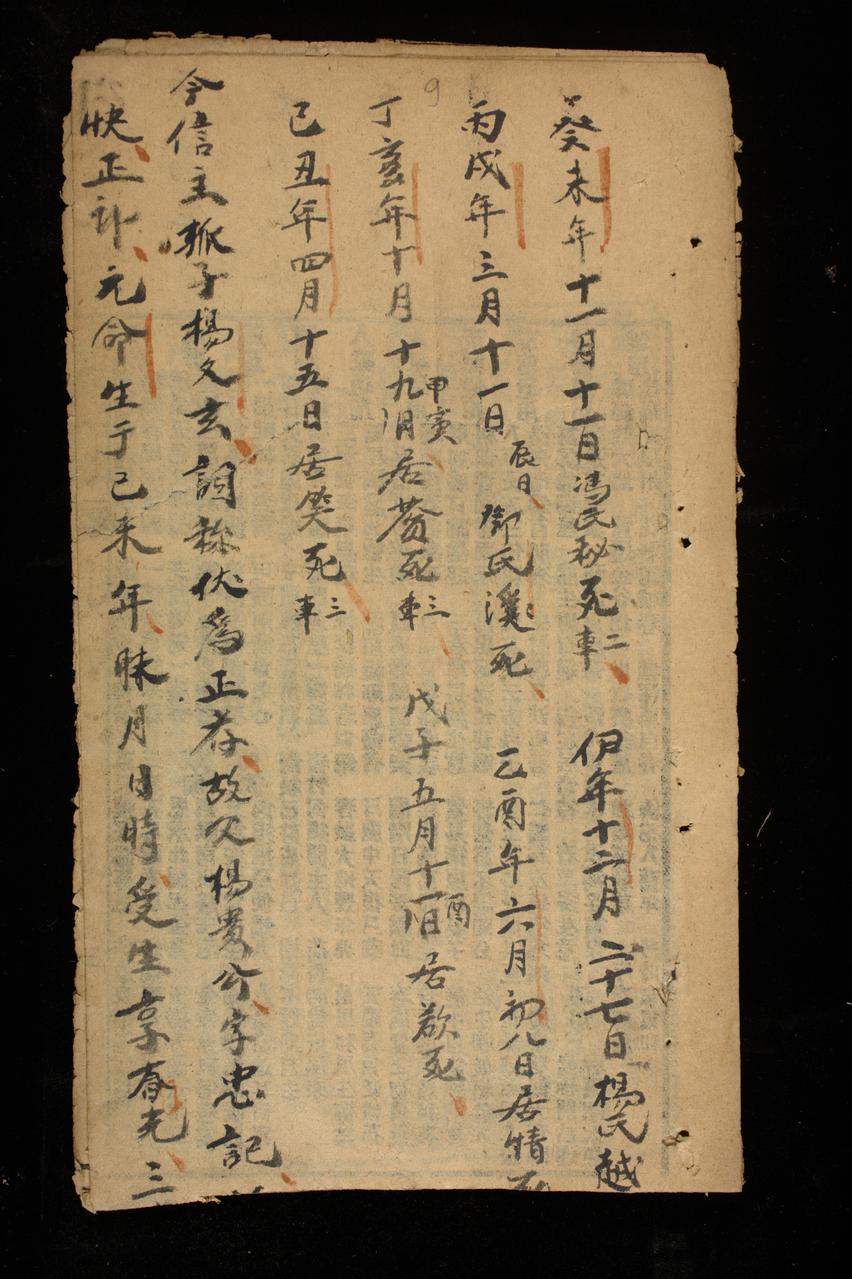 癸未年十一月十一日馮氏秘死二車 伊年十二月二十七日楊氏越
丙戌年三月十一日辰日鄧氏漢死 乙酉年六月初八日居情死
丁亥年十月十九日甲寅居養死三車 戊子五月十一日酉居歎死
己丑年四月十五日居笑死三車
今信主孤子楊文玄詞称伏為正荐故父楊貴公字忠記
快正計元命生于己未年昧月日時受生享春光三
9